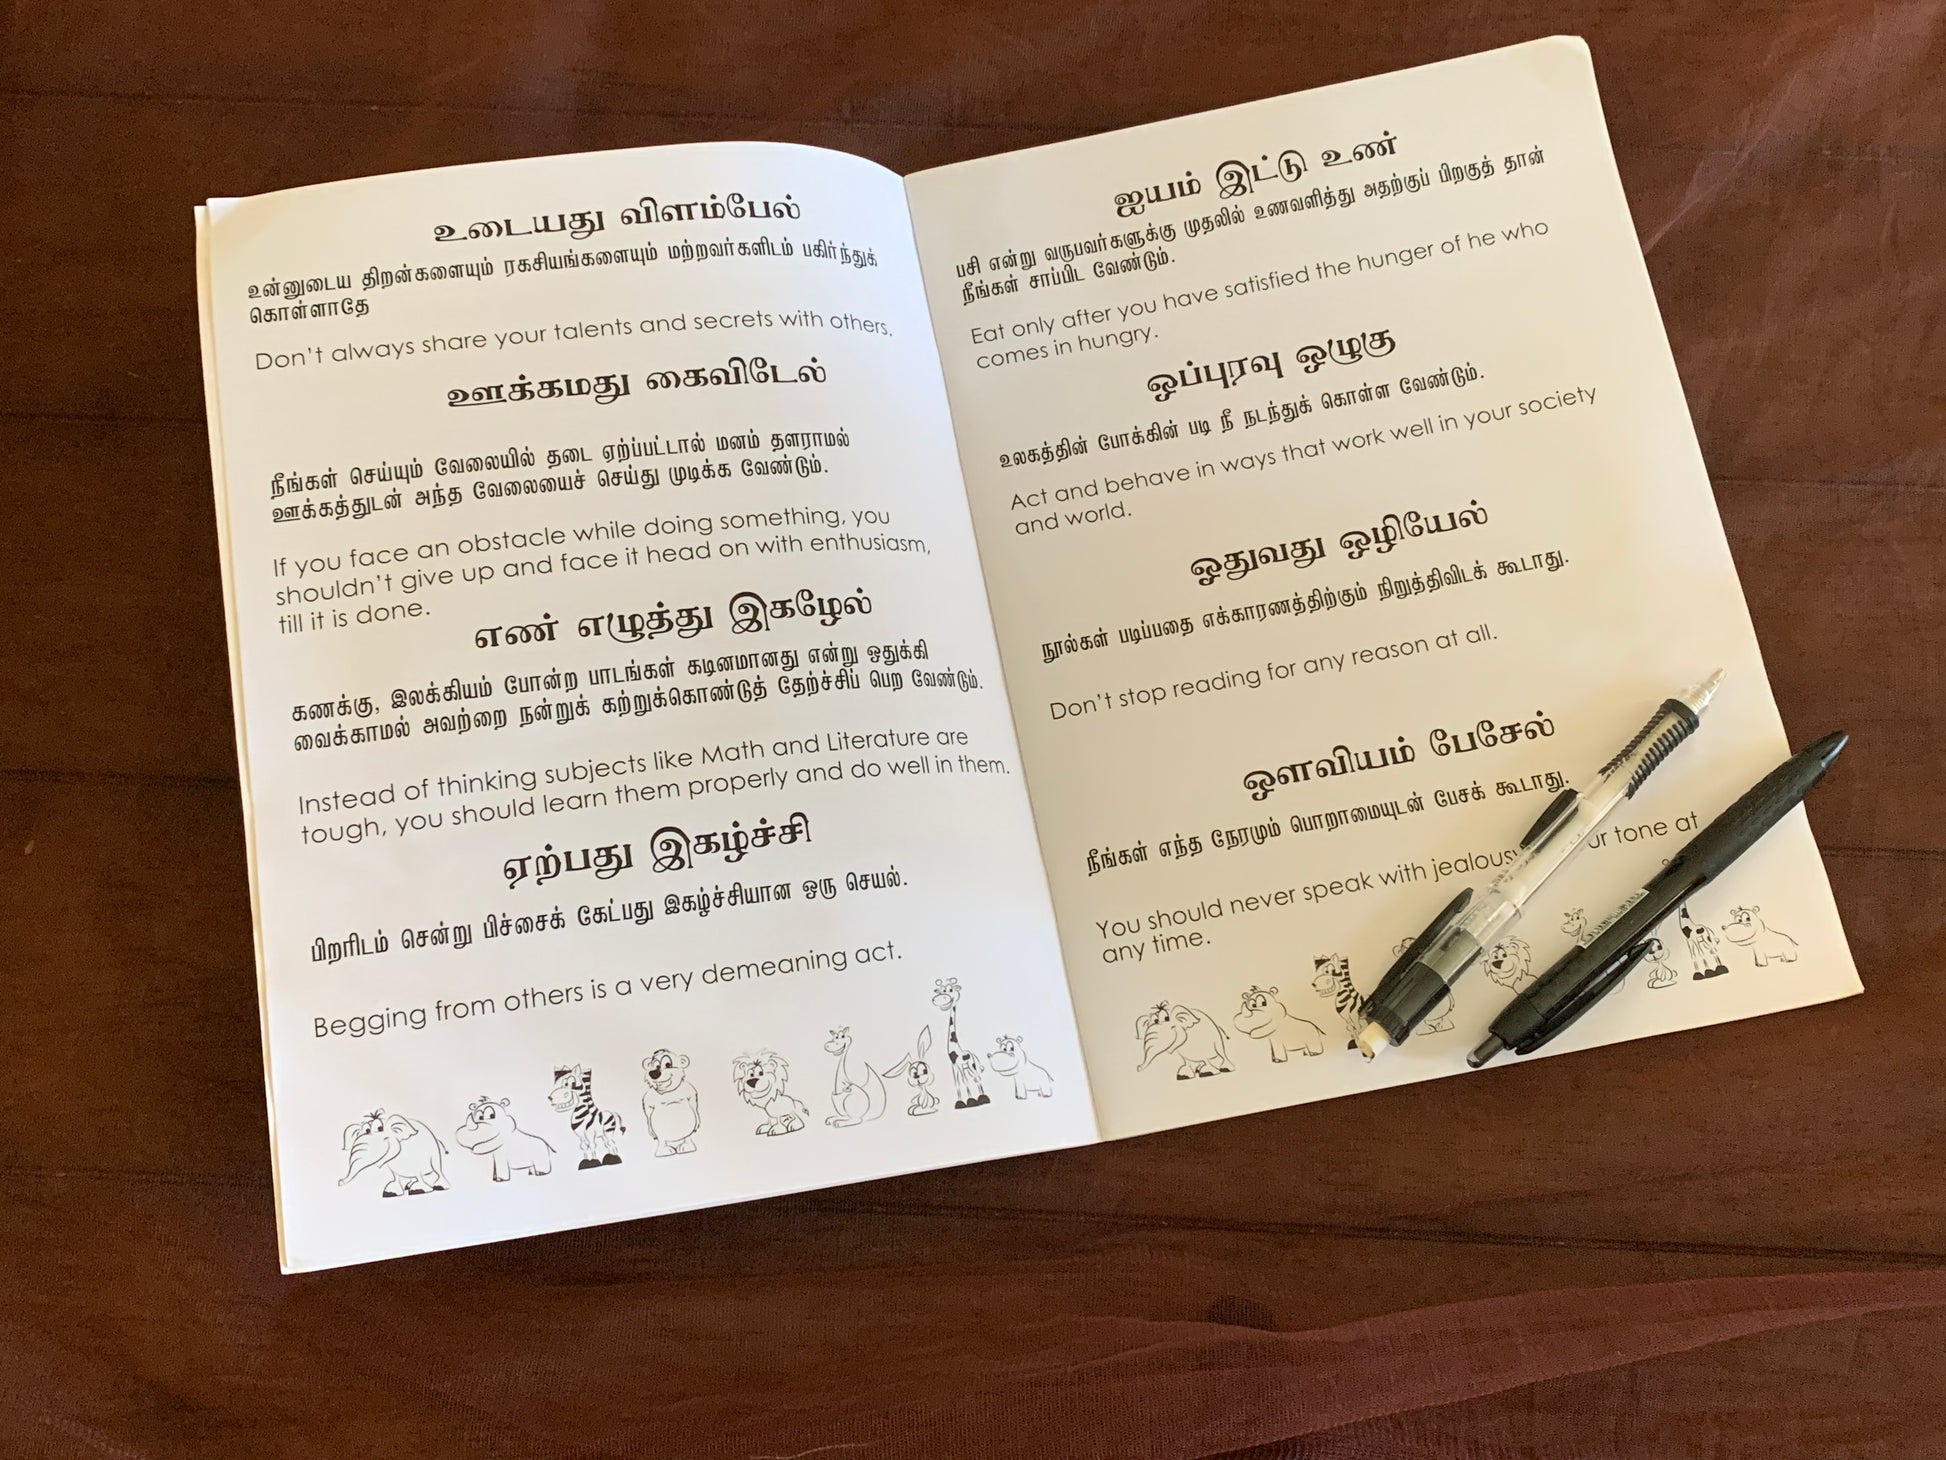 உடையது விளம்பேல்
உன்னுடைய திறன்களையும் ரகசியங்களையும் மற்றவர்களிடம் பகிர்ந்துக்
கொள்ளாதே
Don't always share your talents and secrets with others.
ஊக்கமது கைவிடேல்
நீங்கள் செய்யும் வேலையில் தடை ஏற்ப்பட்டால் மனம் தளராமல்
ஊக்கத்துடன் அந்த வேலையைச் செய்து முடிக்க வேண்டும்.
If you face an obstacle while doing something, you
shouldn't give up and face it head on with enthusiasm,
till it is done.
எண் எழுத்து இகழேல்
கணக்கு, இலக்கியம் போன்ற பாடங்கள் கடினமானது என்று ஒதுக்கி
வைக்காமல் அவற்றை நன்றுக் கற்றுக்கொண்டுத் தேற்ச்சிப் பெற வேண்டும்.
Instead of thinking subjects like Math and Literature are
tough, you should learn them properly and do well in them.
ஏற்பது இகழ்ச்சி
பிறரிடம் சென்று பிச்சைக் கேட்பது இகழ்ச்சியான ஒரு செயல்.
Begging from others is a very demeaning act.
ஐயம் இட்டு உண்
பசி என்று வருபவர்களுக்கு முதலில் உணவளித்து அதற்குப் பிறகுத் தான்
நீங்கள் சாப்பிட வேண்டும்.
Eat only after you have satisfied the hunger of he who
comes in hungry.
ஒப்புரவு ஒழுகு
உலகத்தின் போக்கின் படி நீ நடந்துக் கொள்ள வேண்டும்.
Act and behave in ways that work well in your society
and world.
ஓதுவது ஒழியேல்
நூல்கள் படிப்பதை எக்காரணத்திற்கும் நிறுத்திவிடக் கூடாது.
Don't stop reading for any reason at all.
ஔவியம் பேசேல்
நீங்கள் எந்த நேரமும் பொறாமையுடன் பேசக் கூடாது.
You should never speak with jealousy tone at
any time.